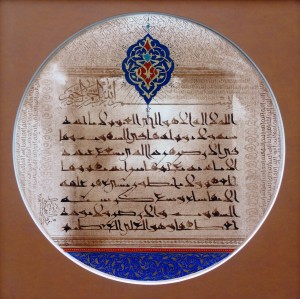 بسم الله الرحمن الرحيم
الله لا اله الا هو الحي القيوم لا تاخذه
سنة ولا نوم له ما في السموات وما
في الارض من ذا الذي يشفع عنده
الا باذنه يعلم ما بين ايديهم وما
خلفهم ولا يحيطون بشيء من علمه
الا بما شاء وسع كرسيه
السموات والارض ولا يوده
حفظهما وهو العلي العظيم